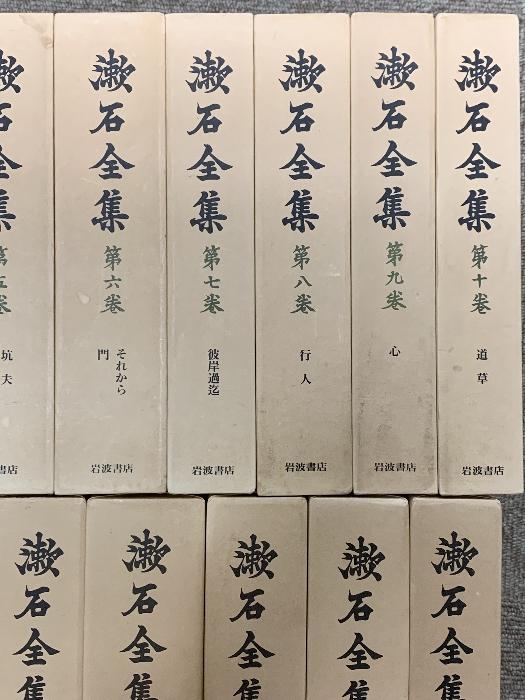 漱石全集
第五巻
坑夫
書店
漱石全集
第六巻
それから
門
岩波書店
漱石全集
第七巻
彼岸過迄
岩波書店
漱石全集
第八巻
行人
岩波書店
漱石全集
第九巻
心
岩波書店
漱石全集
第十巻
道草
岩波書店
漱石全集
漱石全集
漱石全集
漱石全集
漱石全集